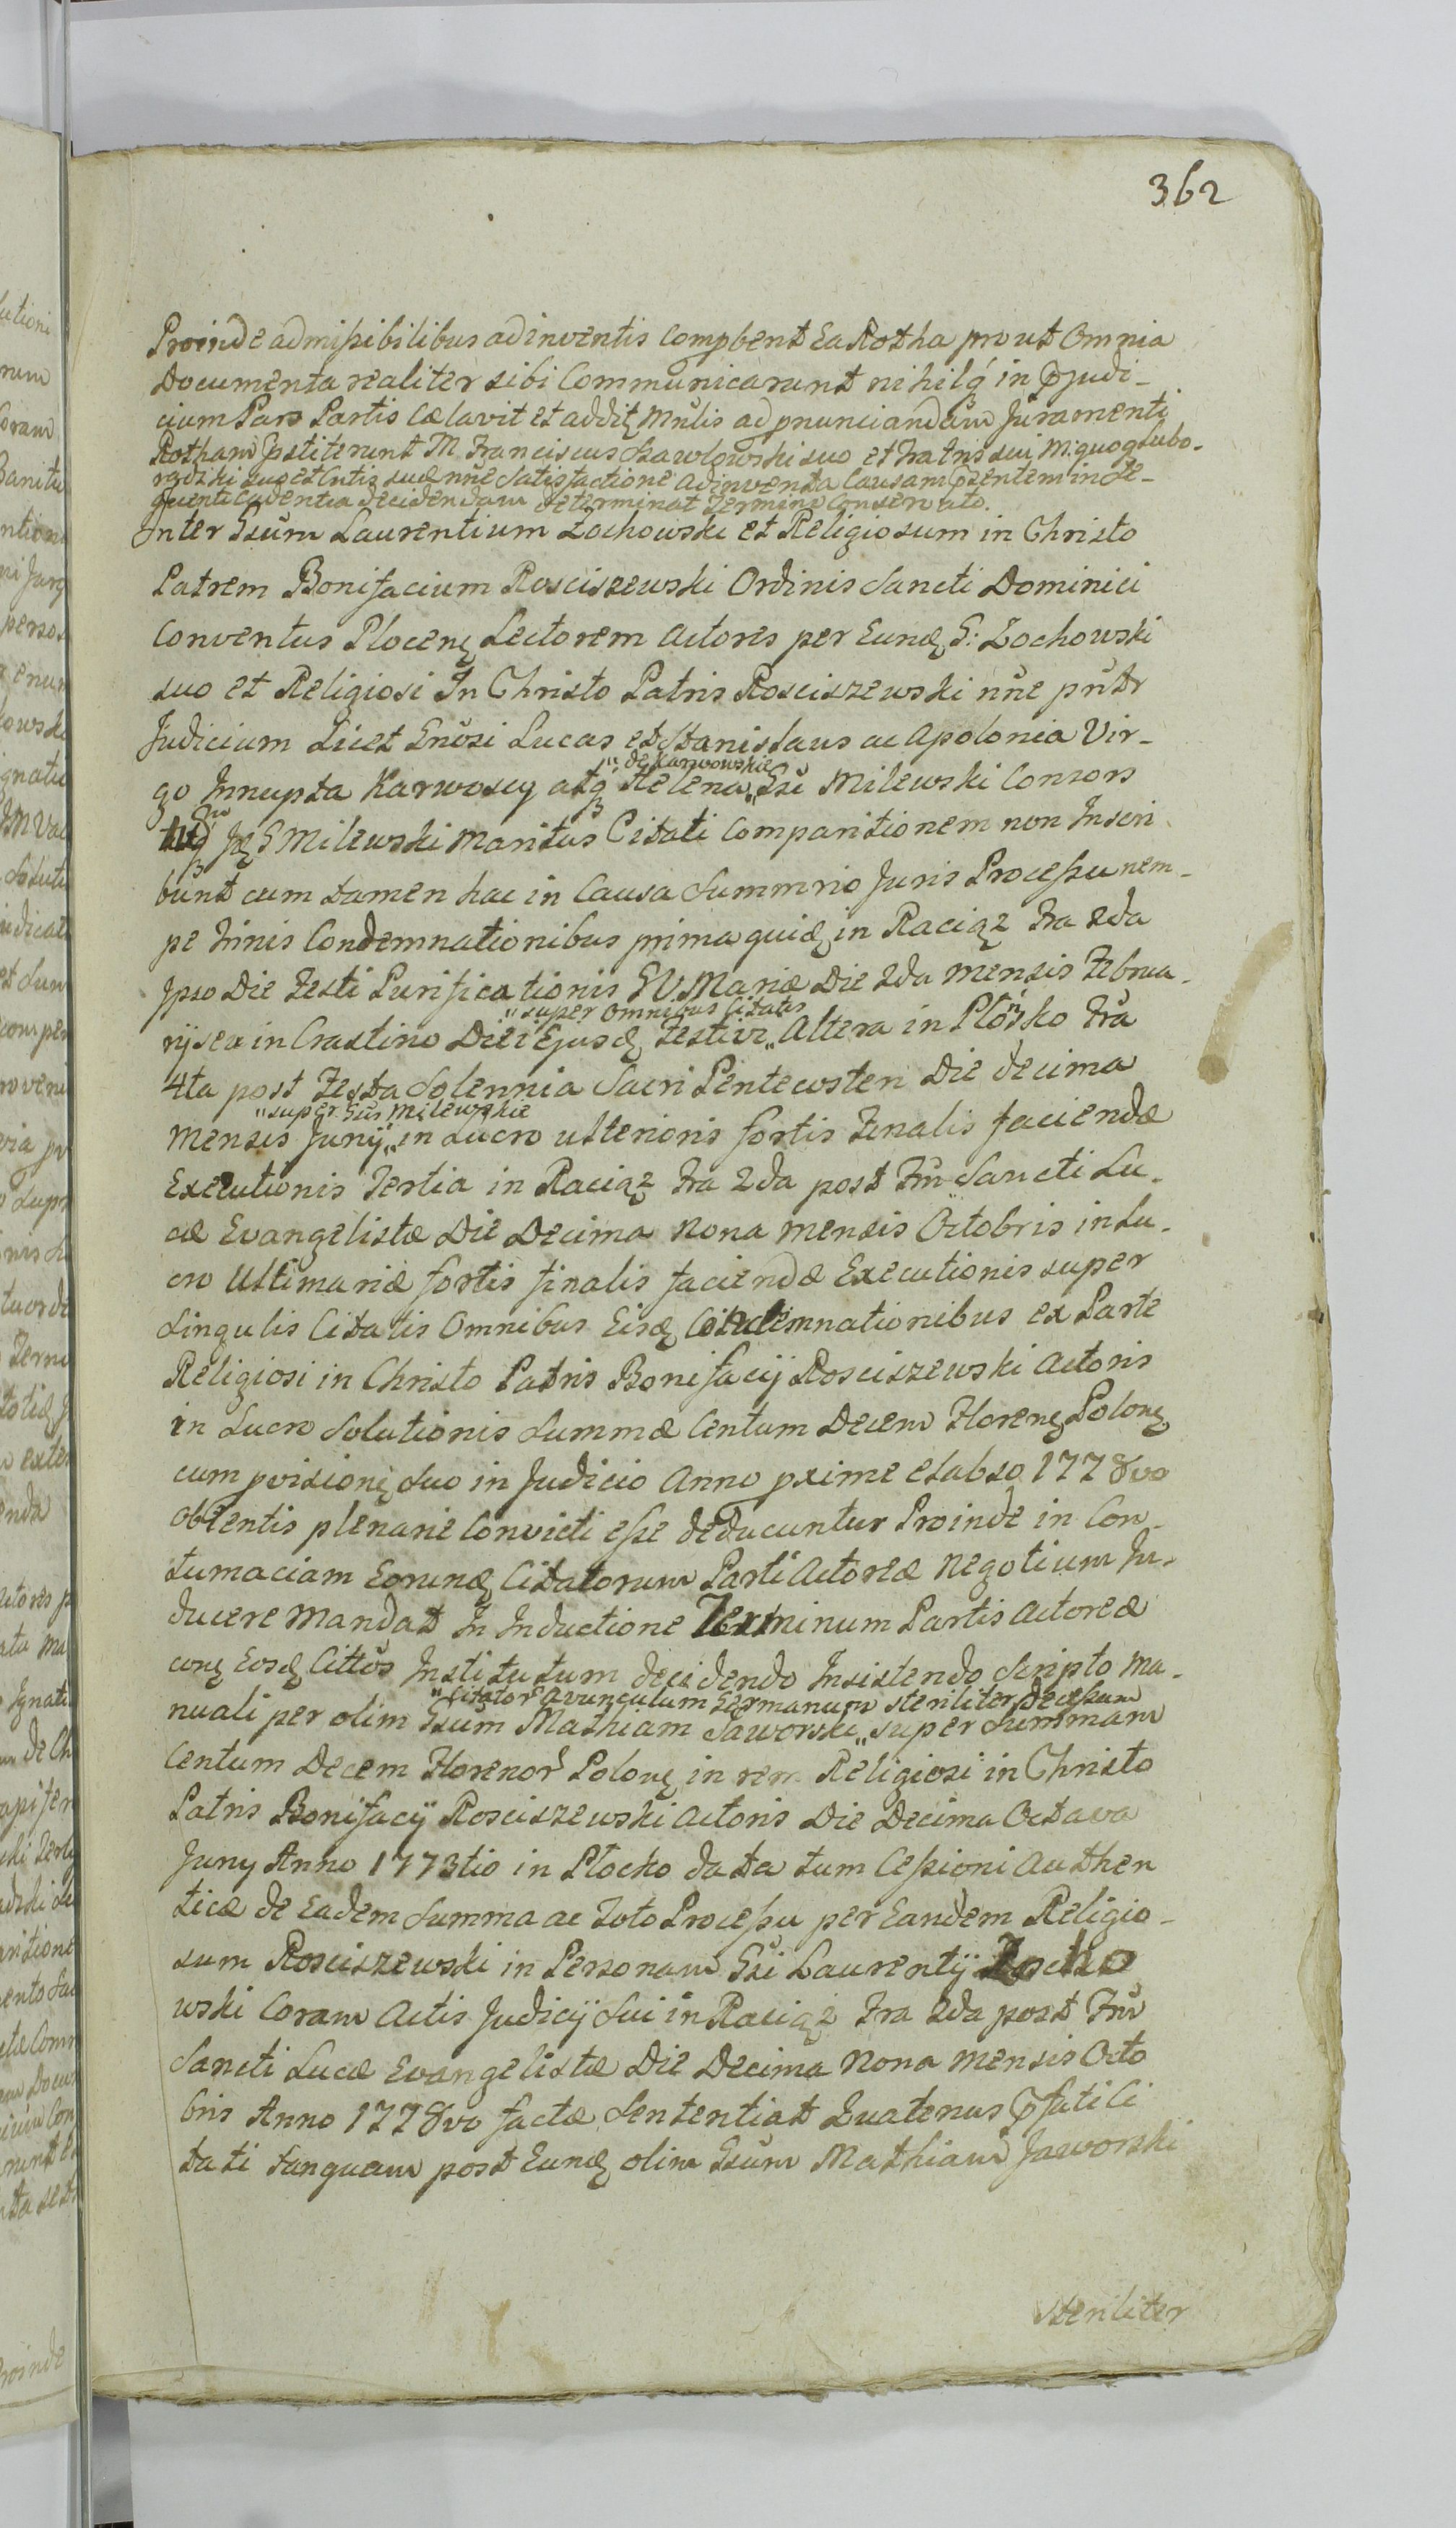 362
Proinde admissibilibus adinventis compbent Ea Rotha prout Omnia
Documenta realiter sibi Communicarunt nihilq in pjudi-
cium Pars Partis Cælavit et addit Mulis ad pnunciandum Juramenti
Rotham pstiterunt M. Franciscus Szawłowski suo et Fratris sui M. quoq Lubo-
radzki suo et Cntis suæ nñe Satisfactione adinventa Causam psentem in se-
quenti Cadentia decidendam determinat Termino Conservato.
Inter Gsum Laurentium Żochowski et Religiosum in Christo
Patrem Bonifacium Rosciszewski Ordinis Sancti Dominici
Conventus Plocen Lectorem Actores per Eund G: Zochowski
suo et Religiosi In Christo Patris Rosciszewski nñe pñtr
Judicium Licet Gnosi Lucas et Stanislaus ac Apolonia Vir-
„de Karwowskie
go Innupta Karwoscy atq Helena„ Gsi Milewski Consors
G Milewski Maritus Citati Comparitionem non Inscri
bunt cum tamen hac in Causa Summrio Juris Processu nem-
pe trinis Condemnationibus prima quid in Raciąz Fra 2da
Ipso Die Festi Purificationis B V. Mariæ Die 2da Mensis Februa-
„super Omnibus Citatis
rij seu in Crastino Diei Ejusd Festivi„ Altera in Płońsko Fra
4ta post Festa Solennia Sacri Pentecosten Die decima
„super Gsis Milewskie
Mensis Junij„ in Lucro ulterioris fortis Finalis faciendæ
Executionis Tertia in Raciąz Fra 2da post Fm Sancti Lu-
cæ Evangelistæ Die Decima Nona Mensis Octobris in Lu-
cro Ultimariæ fortis finalis faciendæ Executionis super
Singulis Citatis Omnibus Eisd Condemnationibus ex Parte
Religiosi in Christo Patris Bonifacij Rosciszewski Actoris
in Lucro Solutionis Summæ Centum Decem Floren Polon
cum pvisione suo in Judicio Anno pxime elapso 1778vo
obtentis plenarie Convicti esse deducuntur Proinde in Con-
tumaciam Eorund Citatorum Parti Actoreæ Negotium In-
ducere Mandat In Inductione Terminum Partis Actoreæ
con Eosd Cittos Institutum decidendo Insistendo Scripto Ma-
„Citator Avunculum Germanum steriliter Decessum
nuali per olim Gsum Mathiam Jaworski„ super Summam
Centum Decem Florenor Polon in rem Religiosi in Christo
Patris Bonifacij Rosciszewski Actoris Die Decima Octava
Juny Anno 1773tio in Płocko data tum Cessioni Authen
ticæ de Eadem Summa ac Toto Processu per Eandem Religio-
sum Rosciszewski in Personam Gsi Laurentij Zocho
wski Coram Actis Judicij Sui in Raciąż Fra 2da post Fm
Sancti Lucæ Evangelistæ Die Decima Nona Mensis Octo
bris Anno 1778vo factæ Sententiat Quatenus pfati Ci
tati tanquam post Eund olim Gsum Mathiam Jaworski
steriliter